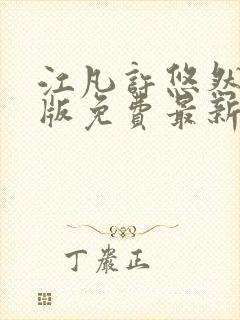 江凡許悠然
版免費最新
丁嚴正